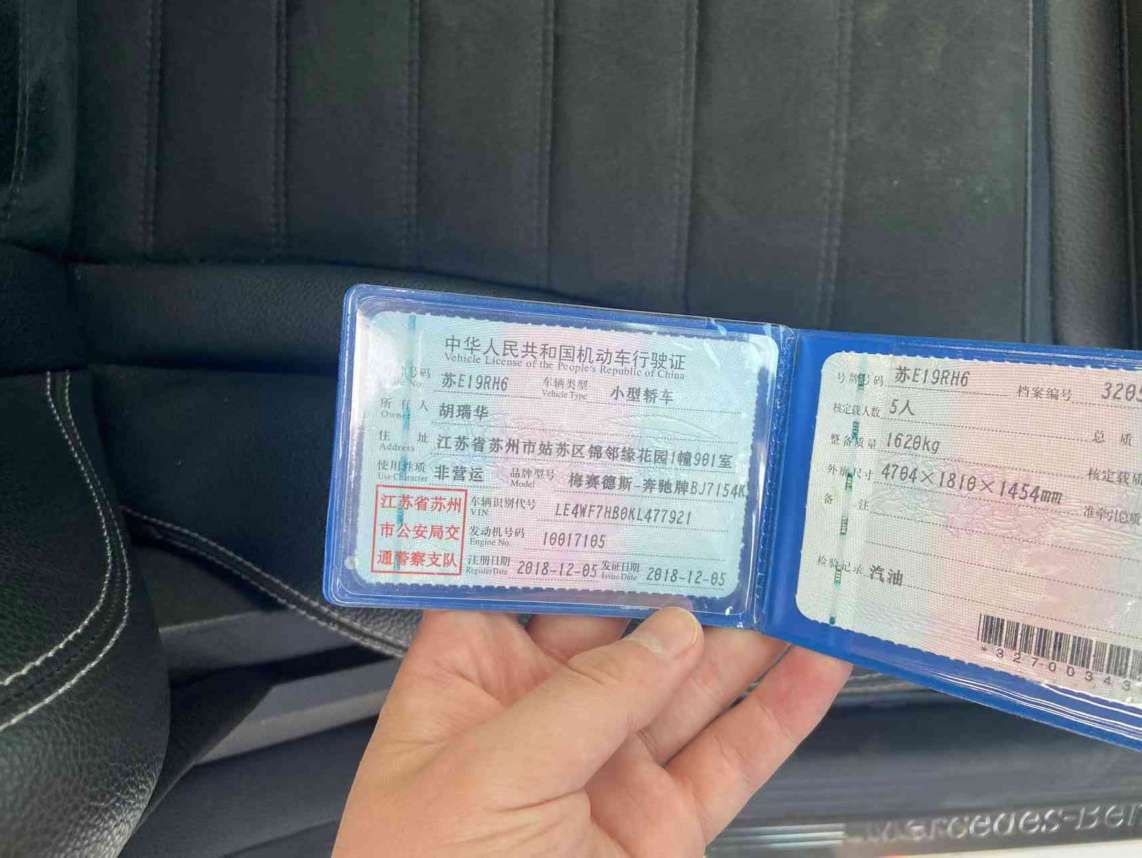 中华人民共和国机动车行驶证
Vehicle License of the People's Republic of China
号码 苏E19RH6 车辆类型 小型轿车
No. Vehicle Type
所有人 胡瑞华
Owner
住址 江苏省苏州市姑苏区锦邻缘花园1幢901室
Address
使用性质 非营运 品牌型号 梅赛德斯-奔驰牌BJ7154K
Use Character Model
江苏省苏州
市公安局交
通警察支队
车辆识别代号 LE4WF7HB0KL477921
VIN
发动机号码 10017105
Engine No.
注册日期 2018-12-05 发证日期 2018-12-05
Register Date Issue Date
号牌号码 苏E19RH6 档案编号 3205
核定载人数 5人 总质
整备质量 1620kg 核定载质
外廓尺寸 4704×1810×1454mm 准牵引总
备注
检验记录 汽油
*32700343
Mercedes-Ben